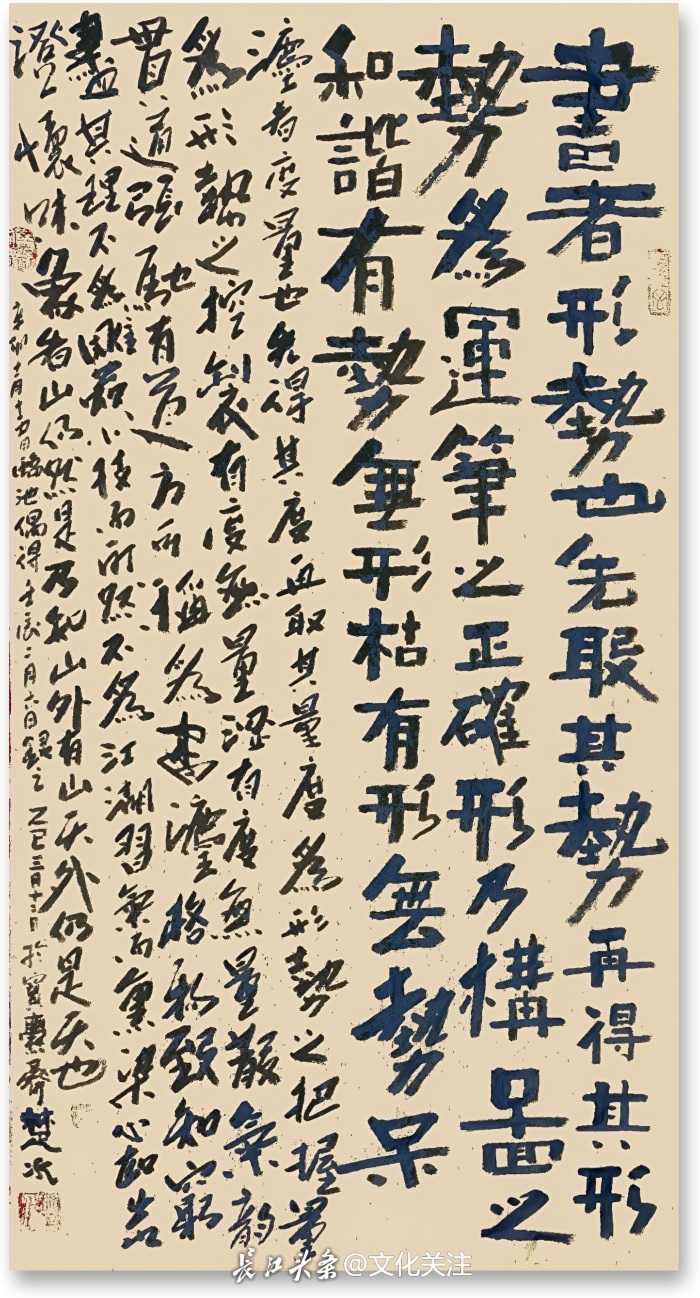 書者形勢也先取其勢再得其形
勢為運筆之正確形乃構圖之
和諧有勢無形枯有形無勢呆
灋者度量也先得其度再取其量度為形勢之把握量
為形勢之控製有度無量澀有度無量散氣韻
貫道張馳有道方可稱為書灋格致知窮
盡其理不為小技而所不為江湖習氣而熏染心如
澄懷味象者山仍然是乃知山外有山天外仍是天也
辛卯十月日臨池偶得壬辰二月六日録之乙巳三月十二日於寶齋楚冰
长江头条@文化关注